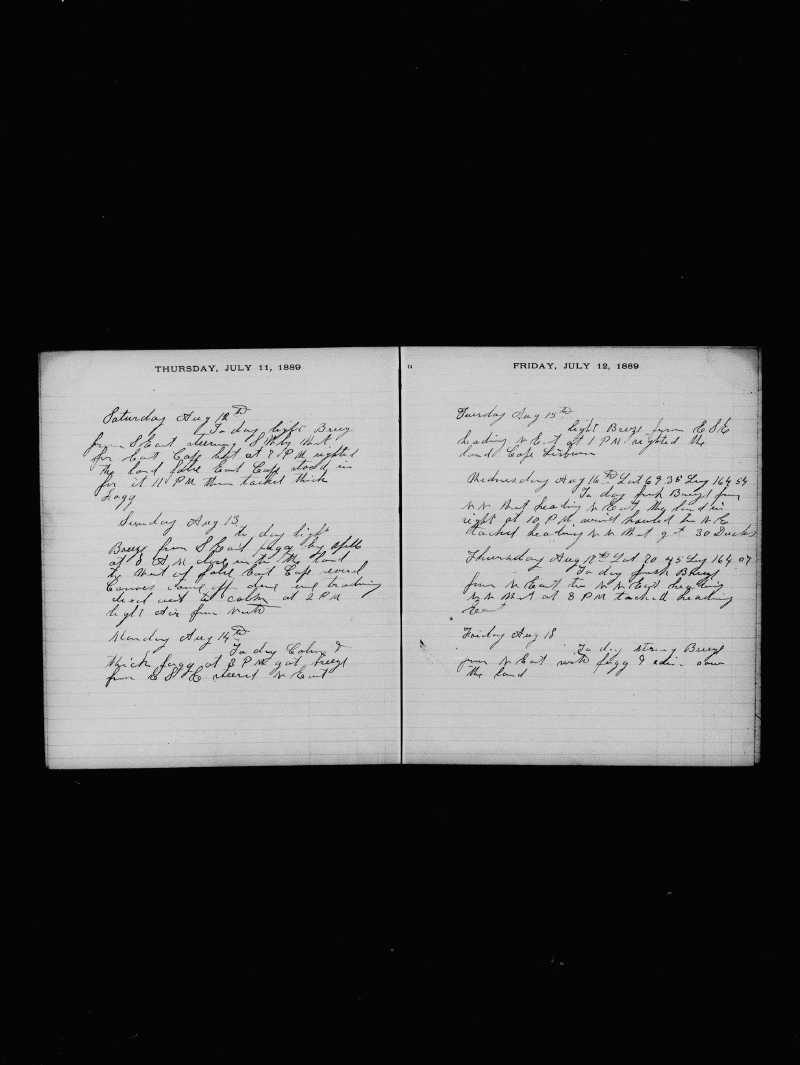 THURSDAY, JULY 11, 1889
Saturday Aug 12th
To day light Breeze
from S East steering S W by West
for East Cape light at 7 P M sighted
the land false East Cape stood in
for it 11 P M then tacked thick
Foggy
Sunday Aug 13
to day light
Breeze from S East foggy by spells
at 8 A M close in to the land
to West of false East Cape several
Canoes came off done some trading
at 2 P M
light Air from North
Monday Aug 14th
To day Calm &
thick foggy at 8 P M got breeze
from E S E steered N East
11
FRIDAY, JULY 12, 1889
Tuesday Aug 15th
light Breeze from E S E
heading N East at 1 P M sighted the
land Cape Lisburn
Wednesday Aug 16th Lat 69 38 Long 164 54
To day fresh Breeze from
N N West heading N East the land in
sight at 10 P M wind hauled to N E
tacked heading N N West got 30 Ducks
Thursday Aug 17th Lat 70 45 Long 164 07
To day fresh Breeze
from N East to N N East heading
N West at 8 P M tacked heading
East
Friday Aug 18
To day strong Breeze
from N East with foggy &
the land